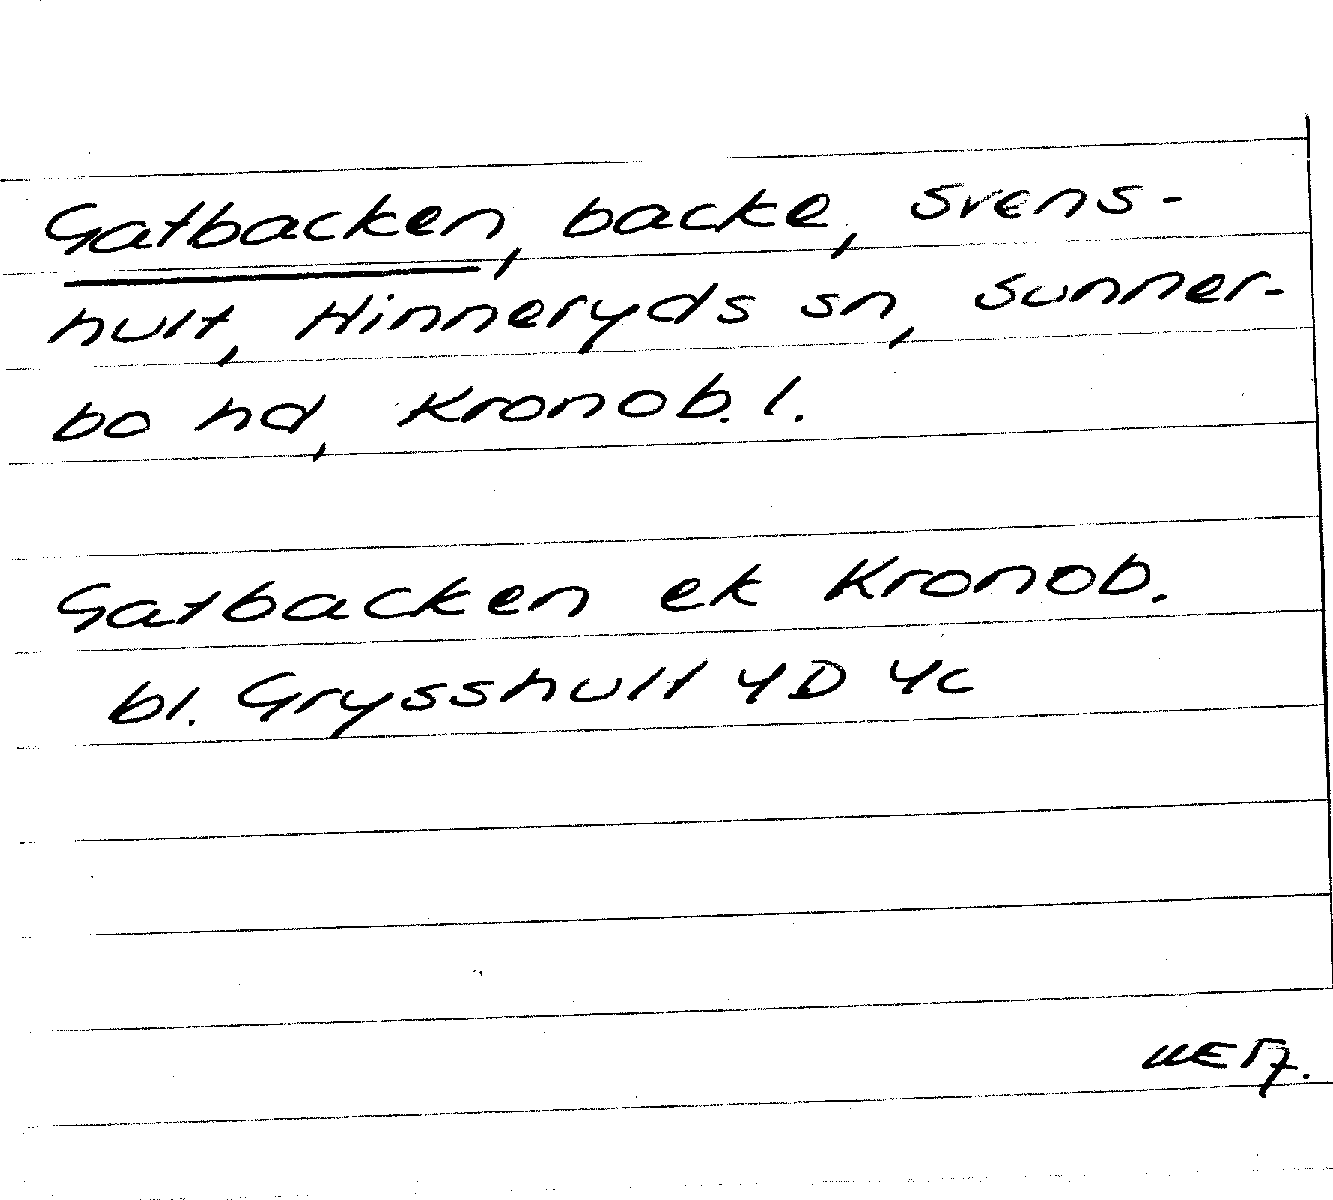 Gatbacken, backe, Svens-
hult, Hinneryds sn, Sunner-
bo hd, Kronob. l.
Gatbacken ek Kronob.
bl. Grysshult 4D 4c